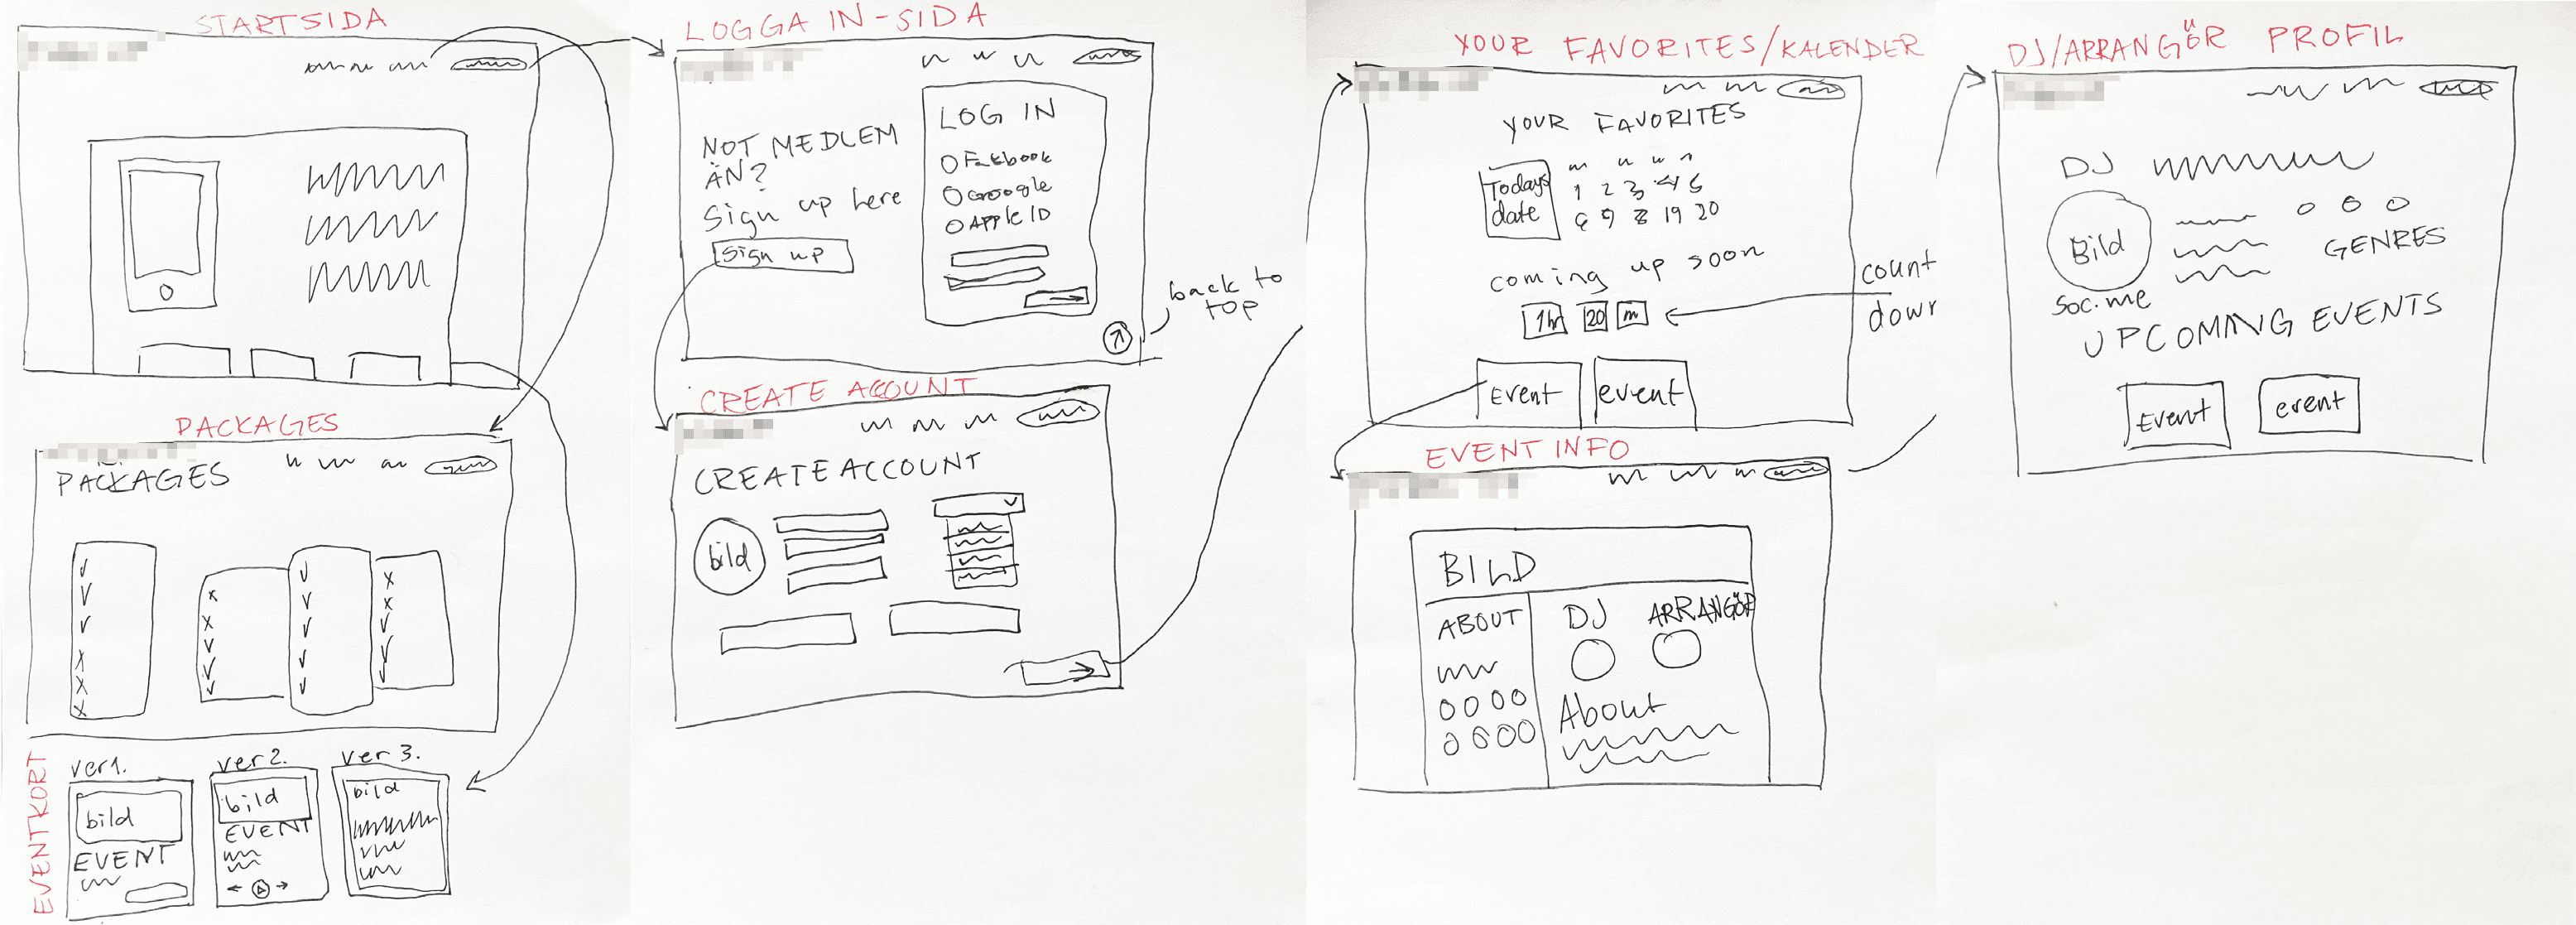 STARTSIDA
PACKAGES
PACKAGES
EVENTKORT
ver 1.
bild
EVENT
ver 2.
bild
EVENT
ver 3.
bild
LOGGA IN-SIDA
NOT MEDLEM
ÄN?
Sign up here
Sign up
LOG IN
Facbook
Google
APPle ID
back to
top
CREATE ACCOUNT
CREATE ACCOUNT
bild
YOUR FAVORITES/KALENDER
YOUR FAVORITES
Todays
date
1 2 3 4 5
6 9 8 19 20
coming up soon
1hr 20 m
count
down
Event
event
EVENT INFO
BILD
ABOUT
DJ
ARRANGÖR
About
DJ/ARRANGÖR PROFIL
DJ
Bild
GENRES
Soc.me
UPCOMING EVENTS
Event
event